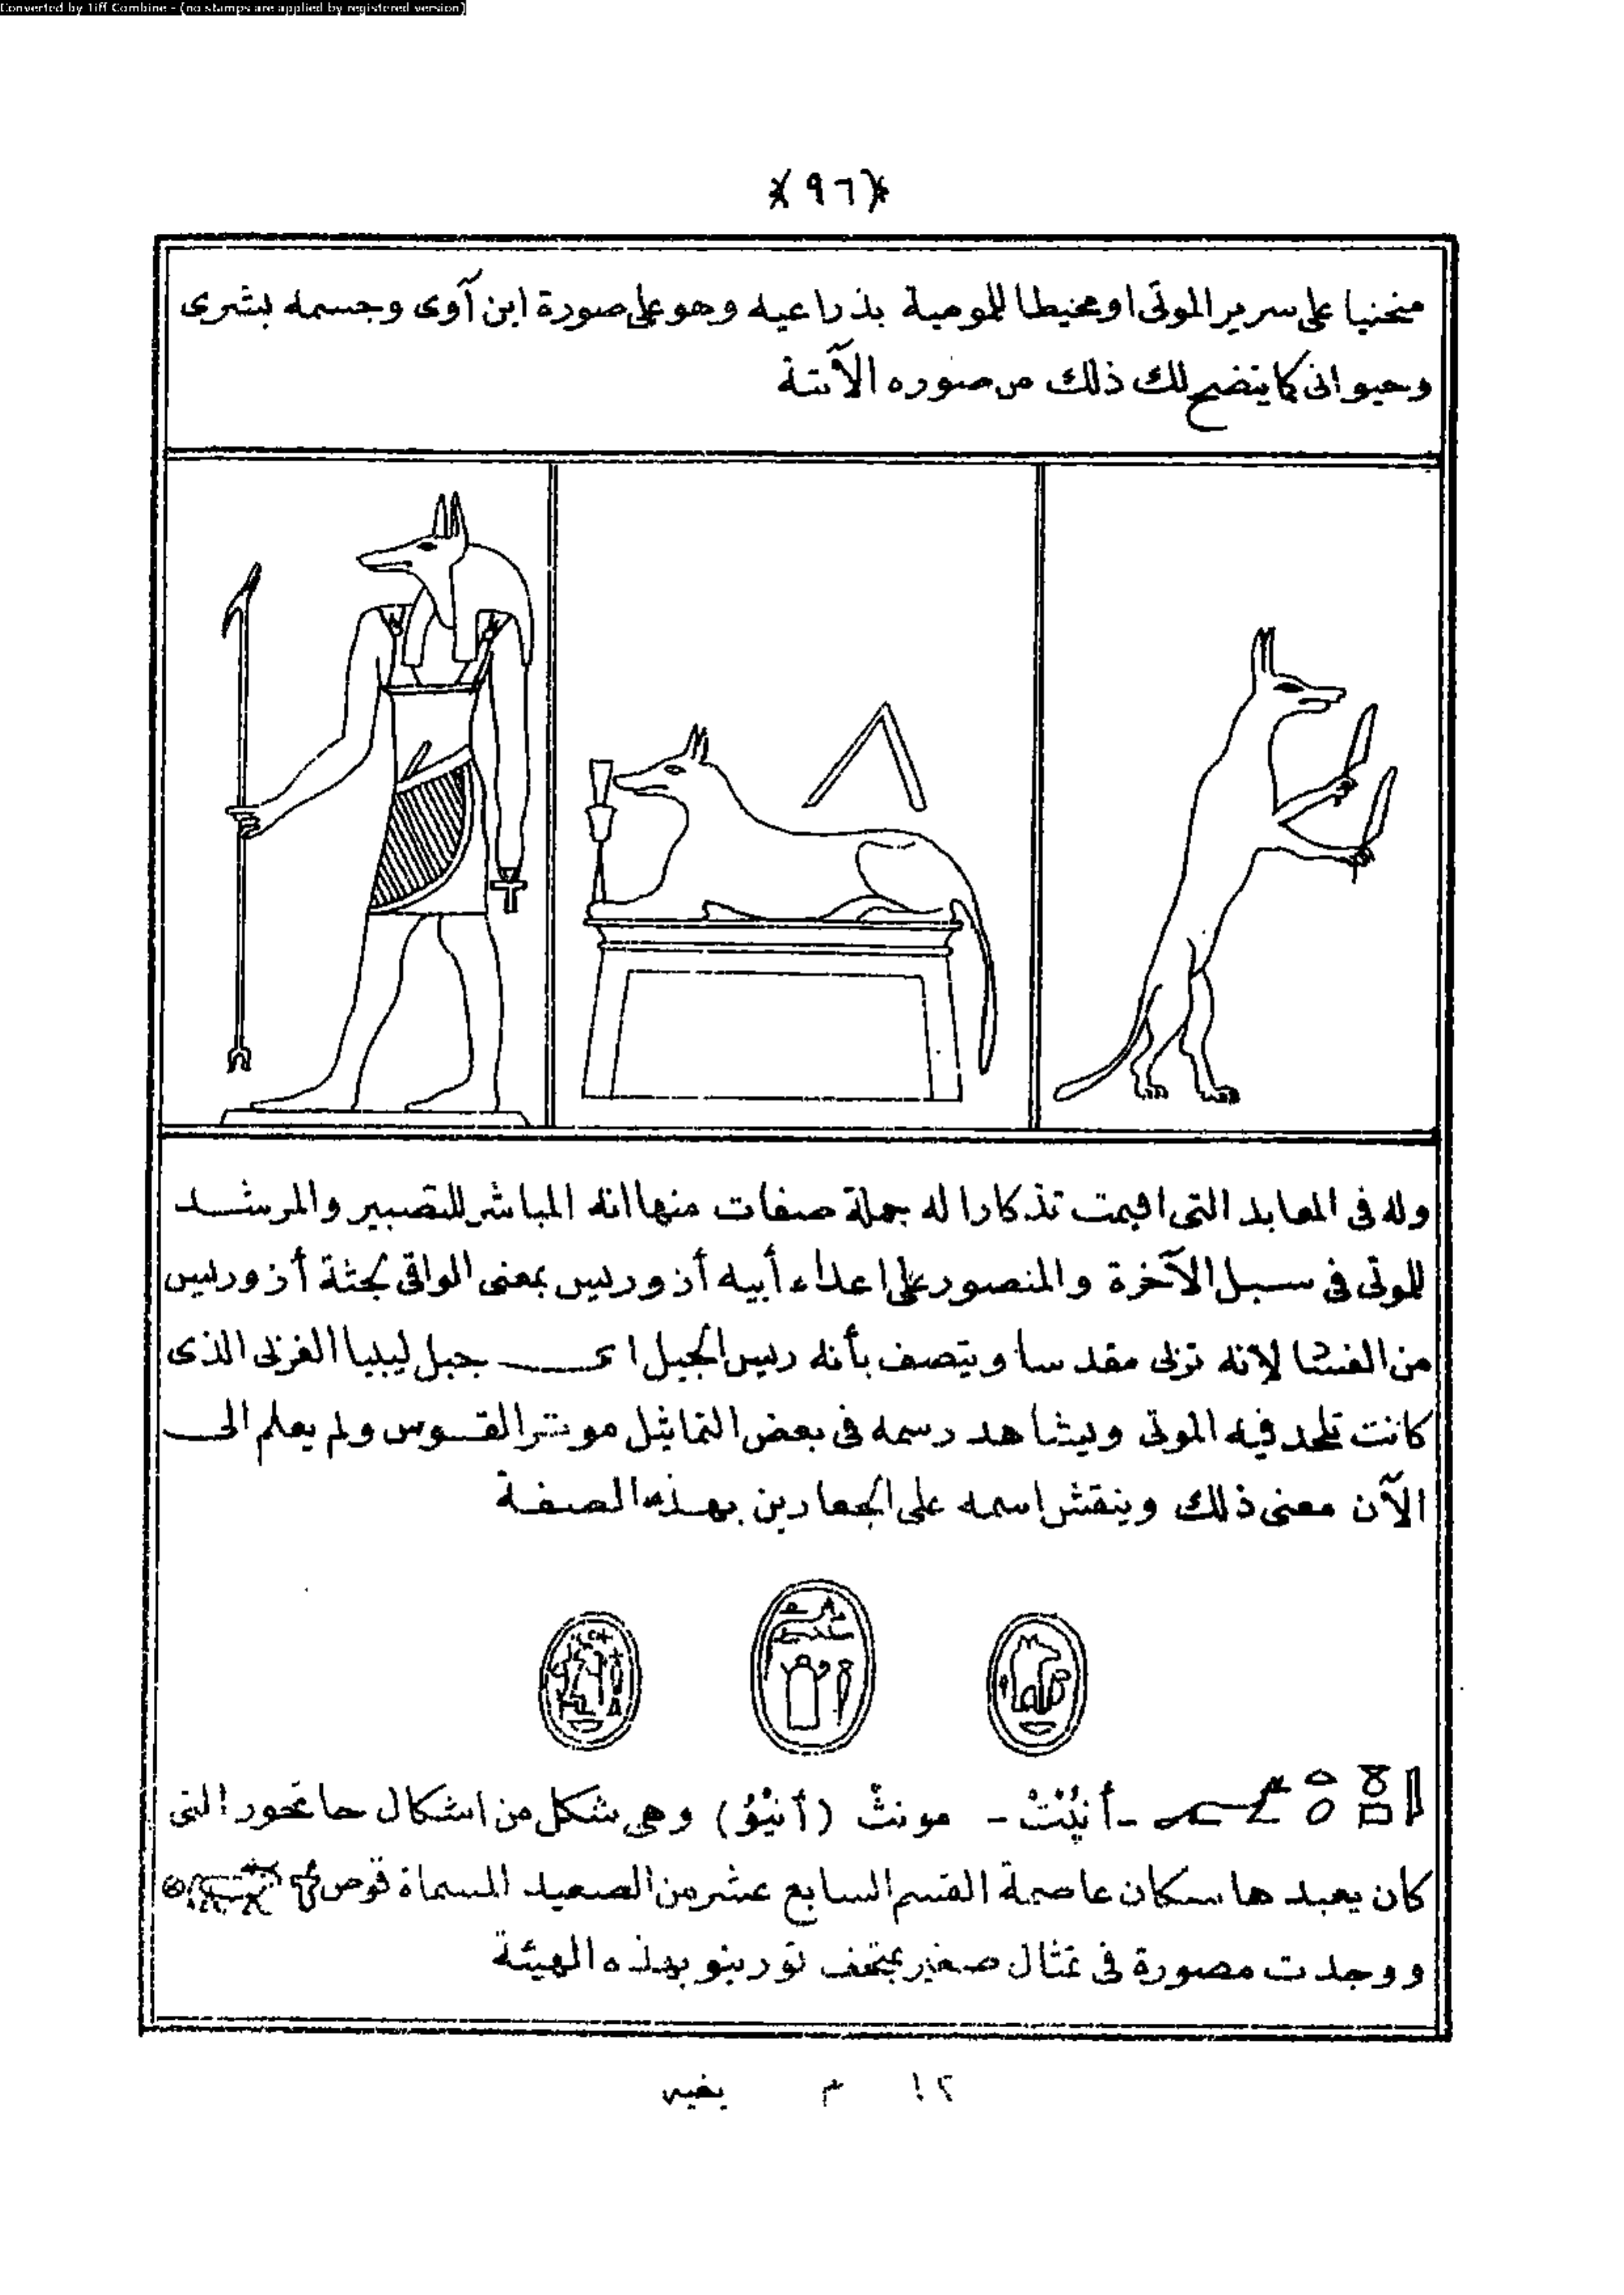 Converted by Tiff Combine - (no stamps are applied by registered version)
(٩٦)
منحنيا على سرير الموتى او محيطا للومية بذراعيه وهو على صورة ابن آوى وجسمه بشرى
وحيوانى كما يتضح لك ذلك من صوره الآتية
وله فى المعابد التى اقيمت تذكارا له جملة صفات منها انه المباشر للتصبير والمرشد
للموتى فى سبل الآخرة والمنصور على اعداء أبيه أزوريس بمعنى الواقى لجثة أزوريس
من الفنا لانه تربى مقدسا ويتصف بأنه ريس الجبل اى جبل ليبيا الغربى الذى
كانت تلحد فيه الموتى ويشاهد رسمه فى بعض التماثيل موتر القوس ولم يعلم الى
الآن معنى ذلك وينقش اسمه على الجعارين بهذه الصفة
- أنپت - مونث (أنپو) وهى شكل من اشكال حاتحور التى
كان يعبدها سكان عاصمة القسم السابع عشر من الصعيد المسماة قوص
ووجدت مصورة فى تمثال صغير بمتحف تورينو بهذه الهيئة
١٢ م بغيه